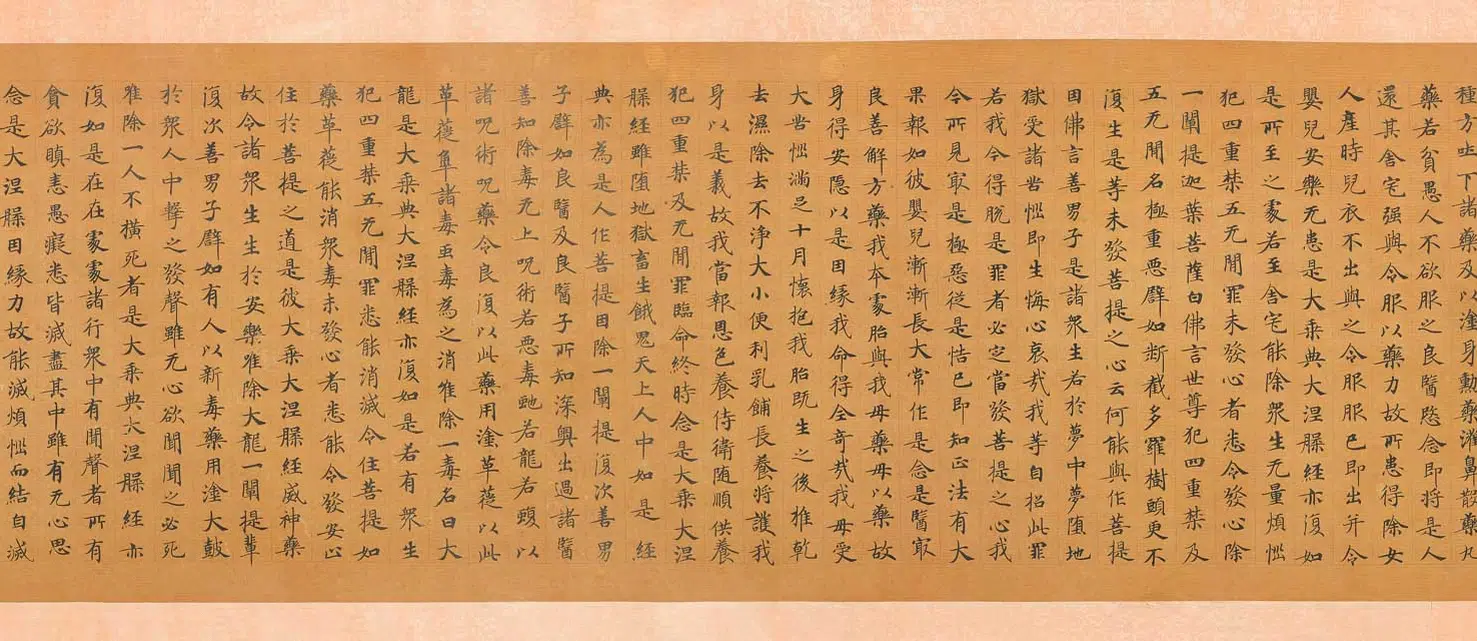 種方吐下諸藥及以塗身勳藥灌鼻散藥丸
藥若貧愚人不欲服之良醫愍念即將是人
還其舍宅强與令服以藥力故所患得除女
人產時兒衣不出與之令服服已即出并令
嬰兒安樂无患是大乘典大涅槃經亦復如
是所至之處若至舍宅能除衆生无量煩惱
犯四重禁五无閒罪未發心者悉令發心除
一闡提迦葉菩薩白佛言世尊犯四重禁及
五无閒名極重惡譬如斷截多羅樹頭更不
復生是等未發菩提之心云何能與作菩提
因佛言善男子是諸衆生若於夢中夢堕地
獄受諸苦惱即生悔心哀哉我等自招此罪
若我今得脫是罪者必定當發菩提之心我
今所見最是極惡從是悟已即知正法有大
果報如彼嬰兒漸漸長大常作是念是醫最
良善解方藥我本處胎與我母藥母以藥故
身得安隱以是因緣我命得全奇哉我母受
大苦惱滿足十月懷抱我胎既生之後推乾
去濕除去不淨大小便利乳餔長養將護我
身以是義故我當報恩色養侍衛随順供養
犯四重禁及无閒罪臨命終時念是大乘大涅
槃經雖堕地獄畜生餓鬼天上人中如是經
典亦為是人作菩提因除一闡提復次善男
子譬如良醫及良醫子所知深奥出過諸醫
善知除毒无上呪術若惡毒虵若龍若蝮以
諸呪術呪藥令良復以此藥用塗革蓰以此
革蓰觸諸毒虫毒為之消唯除一毒名曰大
龍是大乘典大涅槃經亦復如是若有衆生
犯四重禁五无閒罪悉能消滅令住菩提如
藥革蓰能消衆毒未發心者悉能令發安止
住於菩提之道是彼大乘大涅槃經威神藥
故令諸衆生生於安樂唯除大龍一闡提輩
復次善男子譬如有人以新毒藥用塗大鼓
於衆人中擊之發聲雖无心欲聞聞之必死
唯除一人不横死者是大乘典大涅槃經亦
復如是在在處處諸行衆中有聞聲者所有
貪欲瞋恚愚癡悉皆滅盡其中雖有无心思
念是大涅槃因緣力故能滅煩惱而結自滅